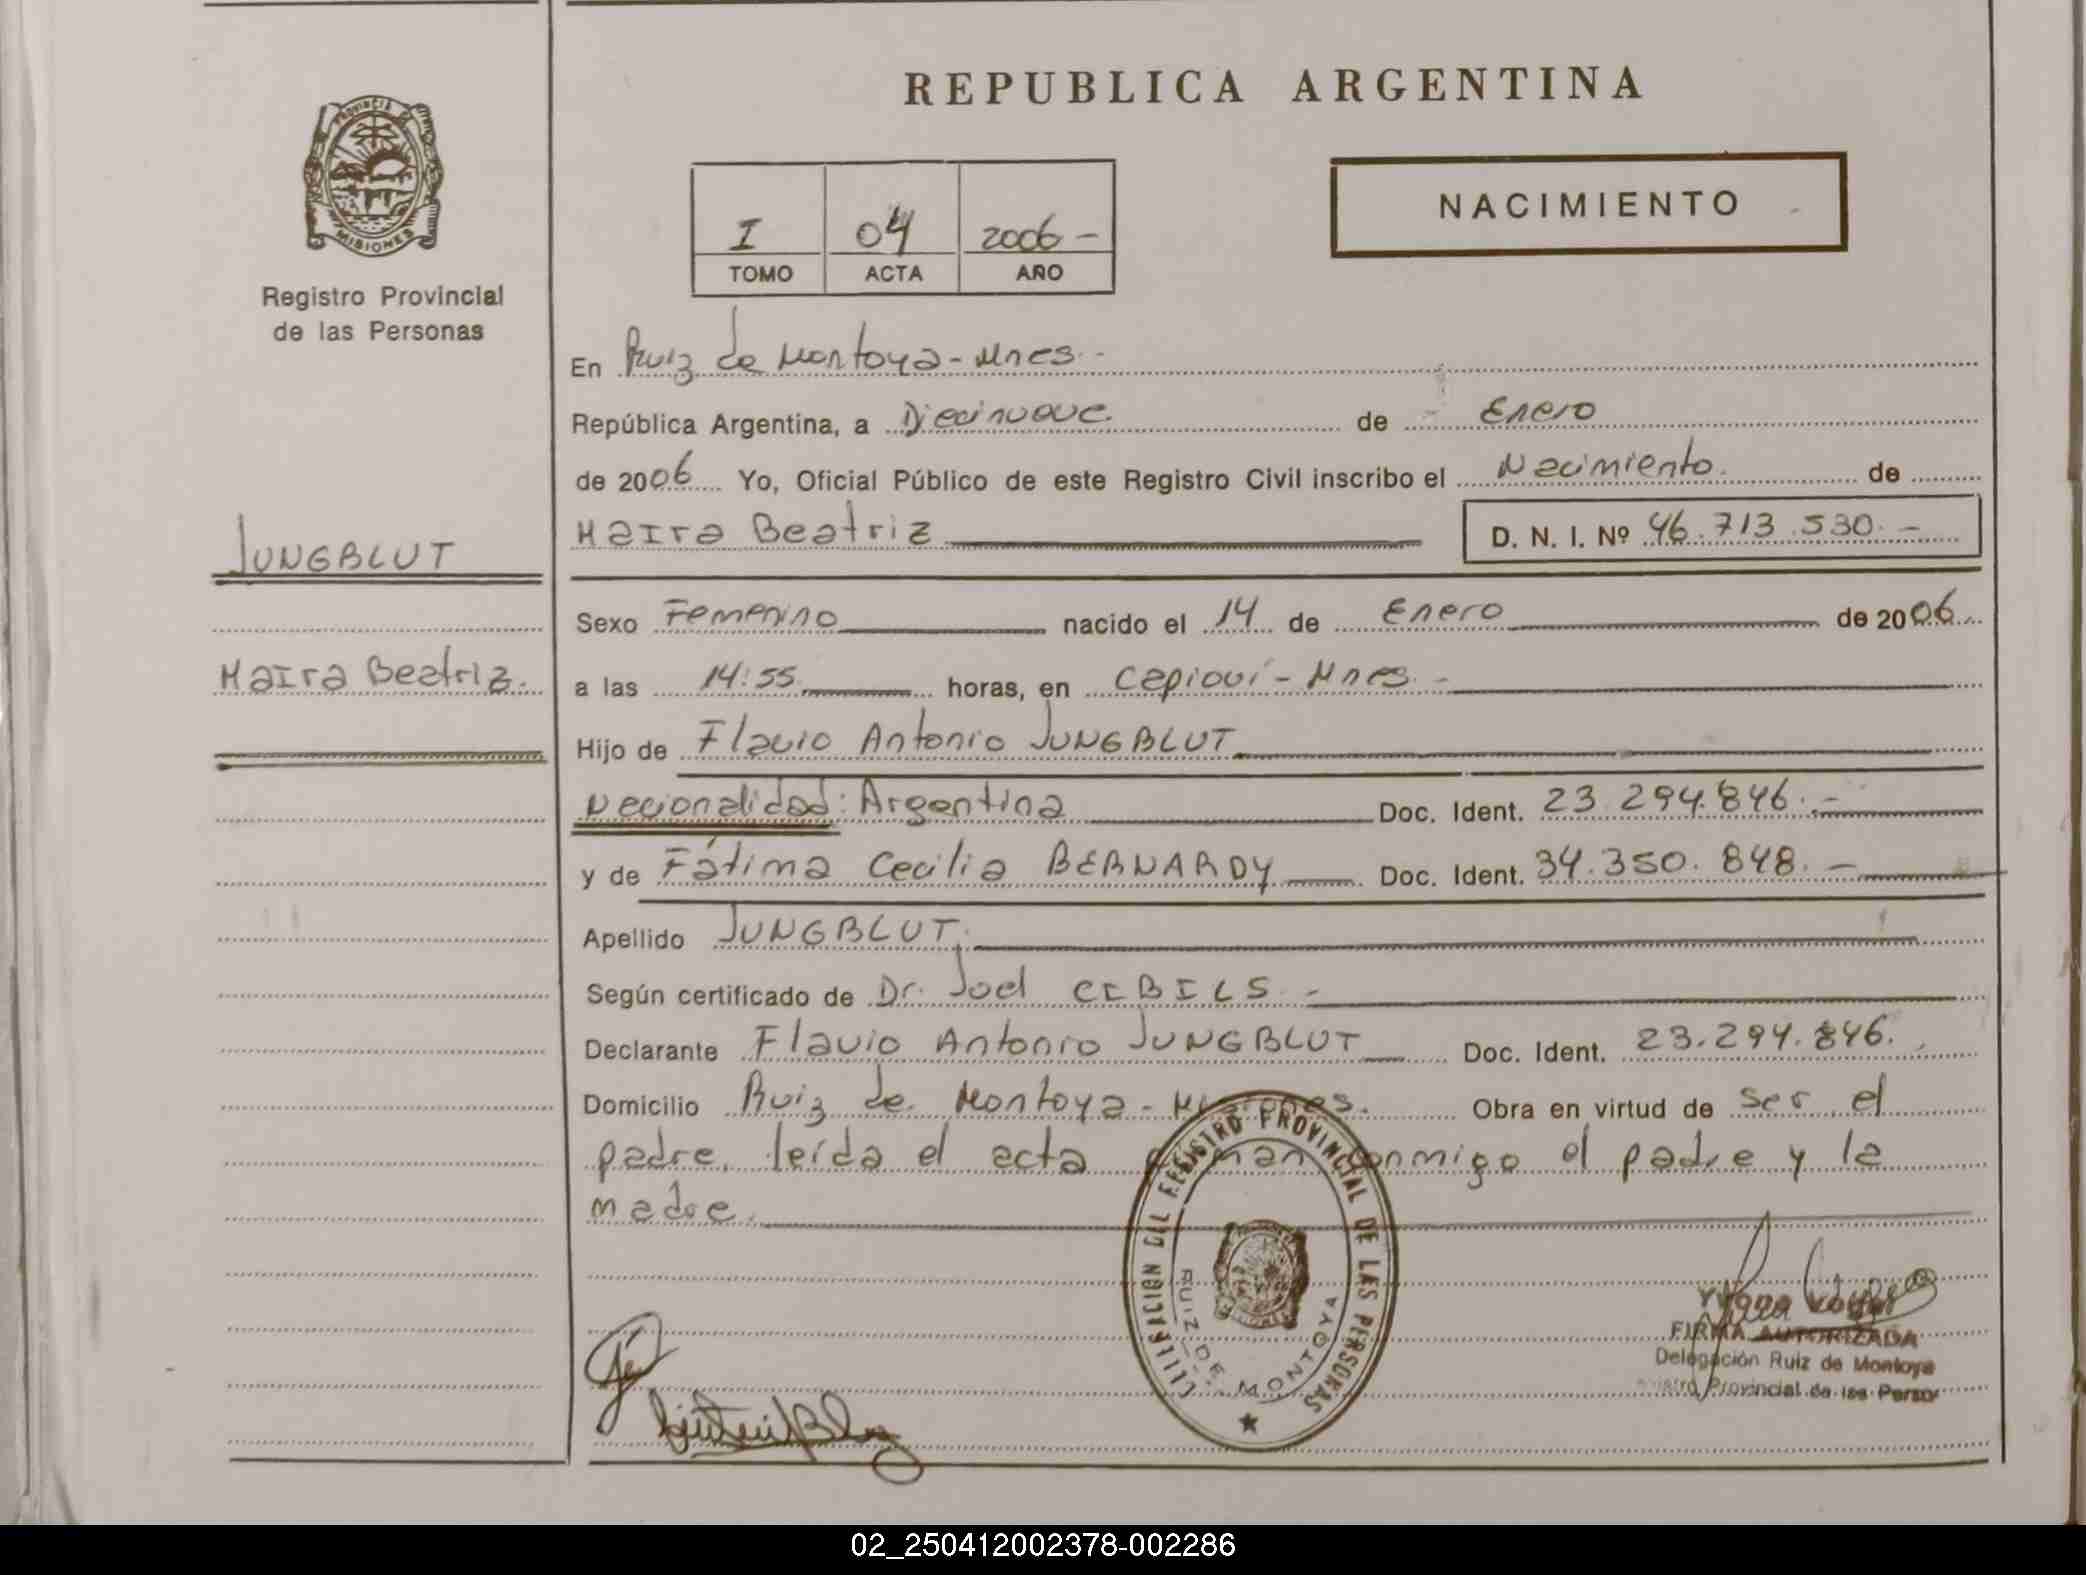 REPUBLICA ARGENTINA
PROVINCIA DE
MISIONES
Registro Provincial
de las Personas
I 04 2006 -
TOMO ACTA AÑO
NACIMIENTO
En Ruiz de Montoya - Mnes. -
República Argentina, a Diecinueve. de Enero
de 2006 Yo, Oficial Público de este Registro Civil inscribo el Nacimiento. de
Maira Beatriz D. N. I. Nº 46.713.530. -
JUNGBLUT
Maira Beatriz.
Sexo Femenino nacido el 14 de Enero de 2006
a las 14:55 horas, en Capioví - Mnes. -
Hijo de Flavio Antonio JUNGBLUT
Nacionalidad: Argentina Doc. Ident. 23.294.846. -
y de Fátima Cecilia BERNARDY Doc. Ident. 34.350.848. -
Apellido JUNGBLUT.
Según certificado de Dr. Joel CIBILS -
Declarante Flavio Antonio JUNGBLUT Doc. Ident. 23.294.846.
Domicilio Ruiz de Montoya - Misiones. Obra en virtud de ser el
padre, leída el acta firman conmigo el padre y la
madre.
DELEGACION DEL REGISTRO PROVINCIAL DE LAS PERSONAS
RUIZ DE MONTOYA
FIRMA AUTORIZADA
Delegación Ruiz de Montoya
Provincial de las Person
02_250412002378-002286